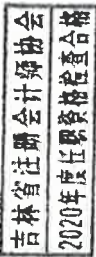 吉林省注册会计师协会
2020年度任职资格检查合格